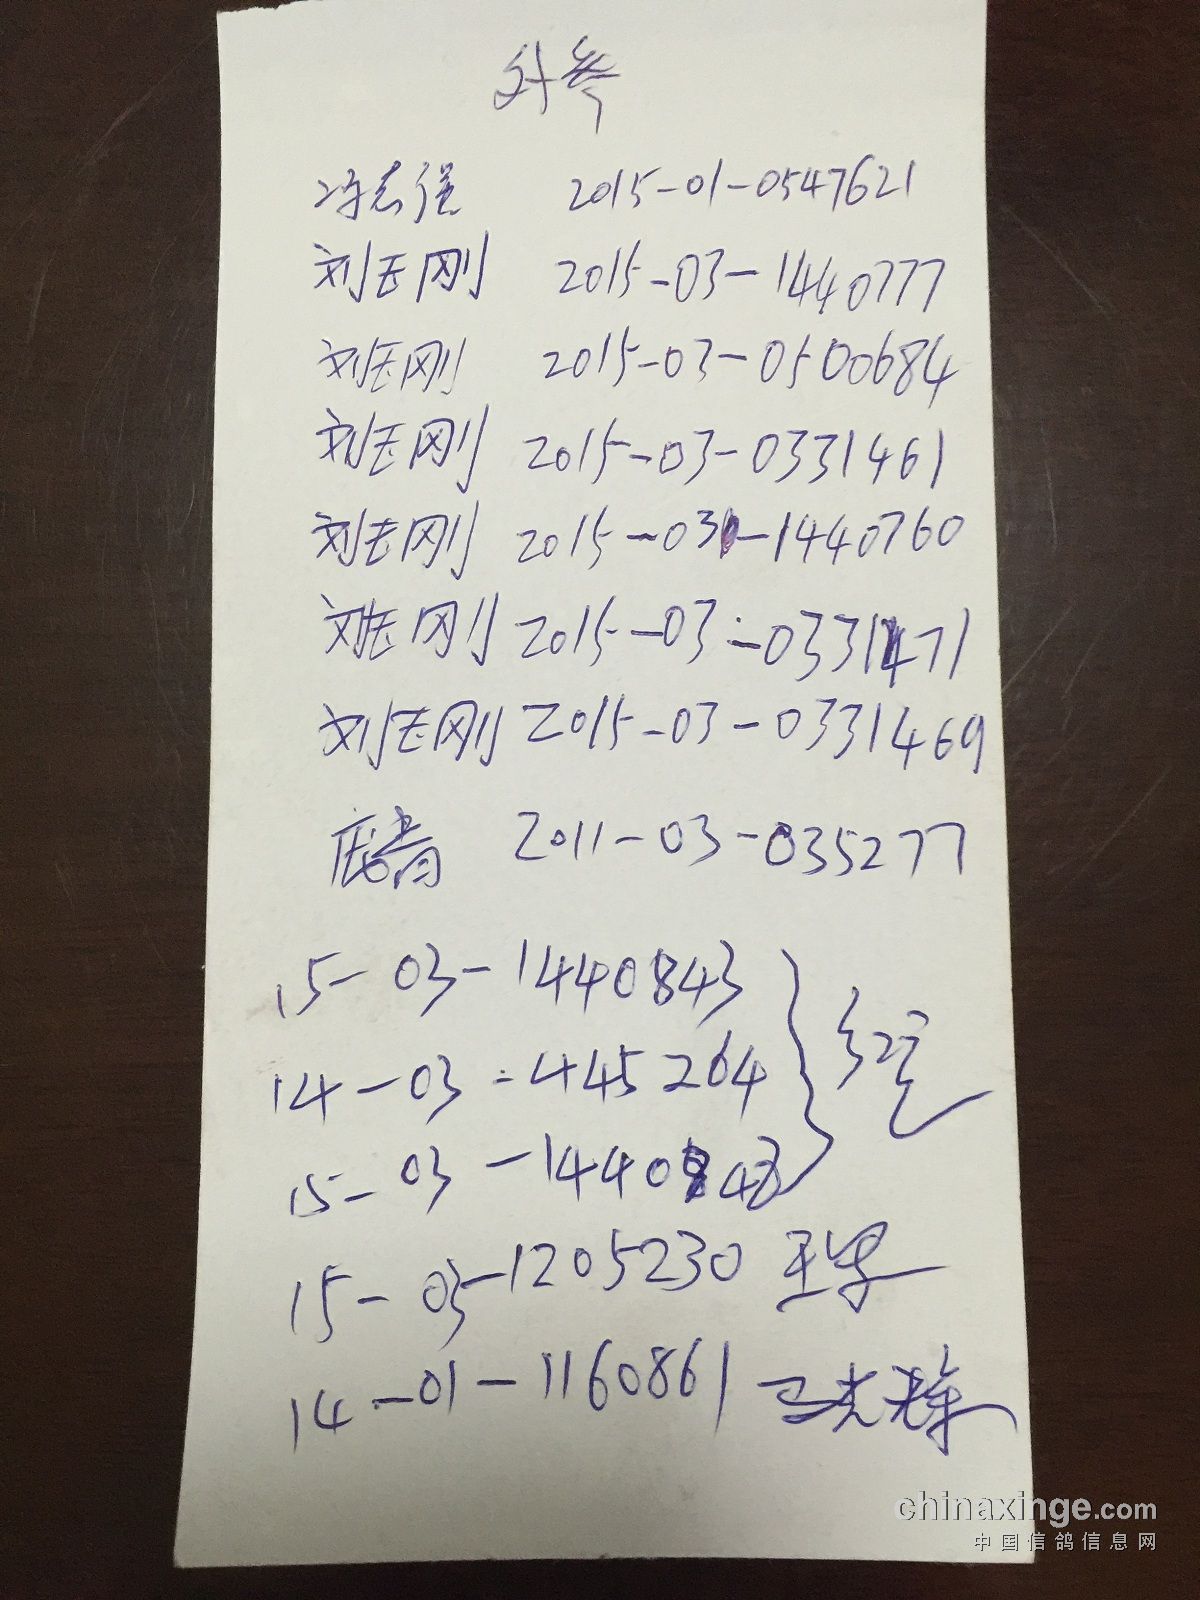 外参
冯志强 2015-01-0547621
刘玉刚 2015-03-1440777
刘玉刚 2015-03-0500684
刘玉刚 2015-03-0331461
刘玉刚 2015-03-1440760
刘玉刚 2015-03-0331471
刘玉刚 2015-03-0331469
2011-03-035277
15-03-1440843
14-03-445264
15-03-1440848
15-03-1205230
14-01-1160861
chinaxinge.com
中国信鸽信息网